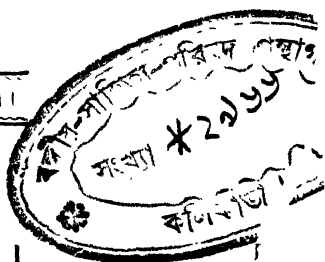 বঙ্গীয়-সাহিত্য-পরিষদ গ্রন্থাগ
সংখ্যা *২৯৬৬
কলিকাতা